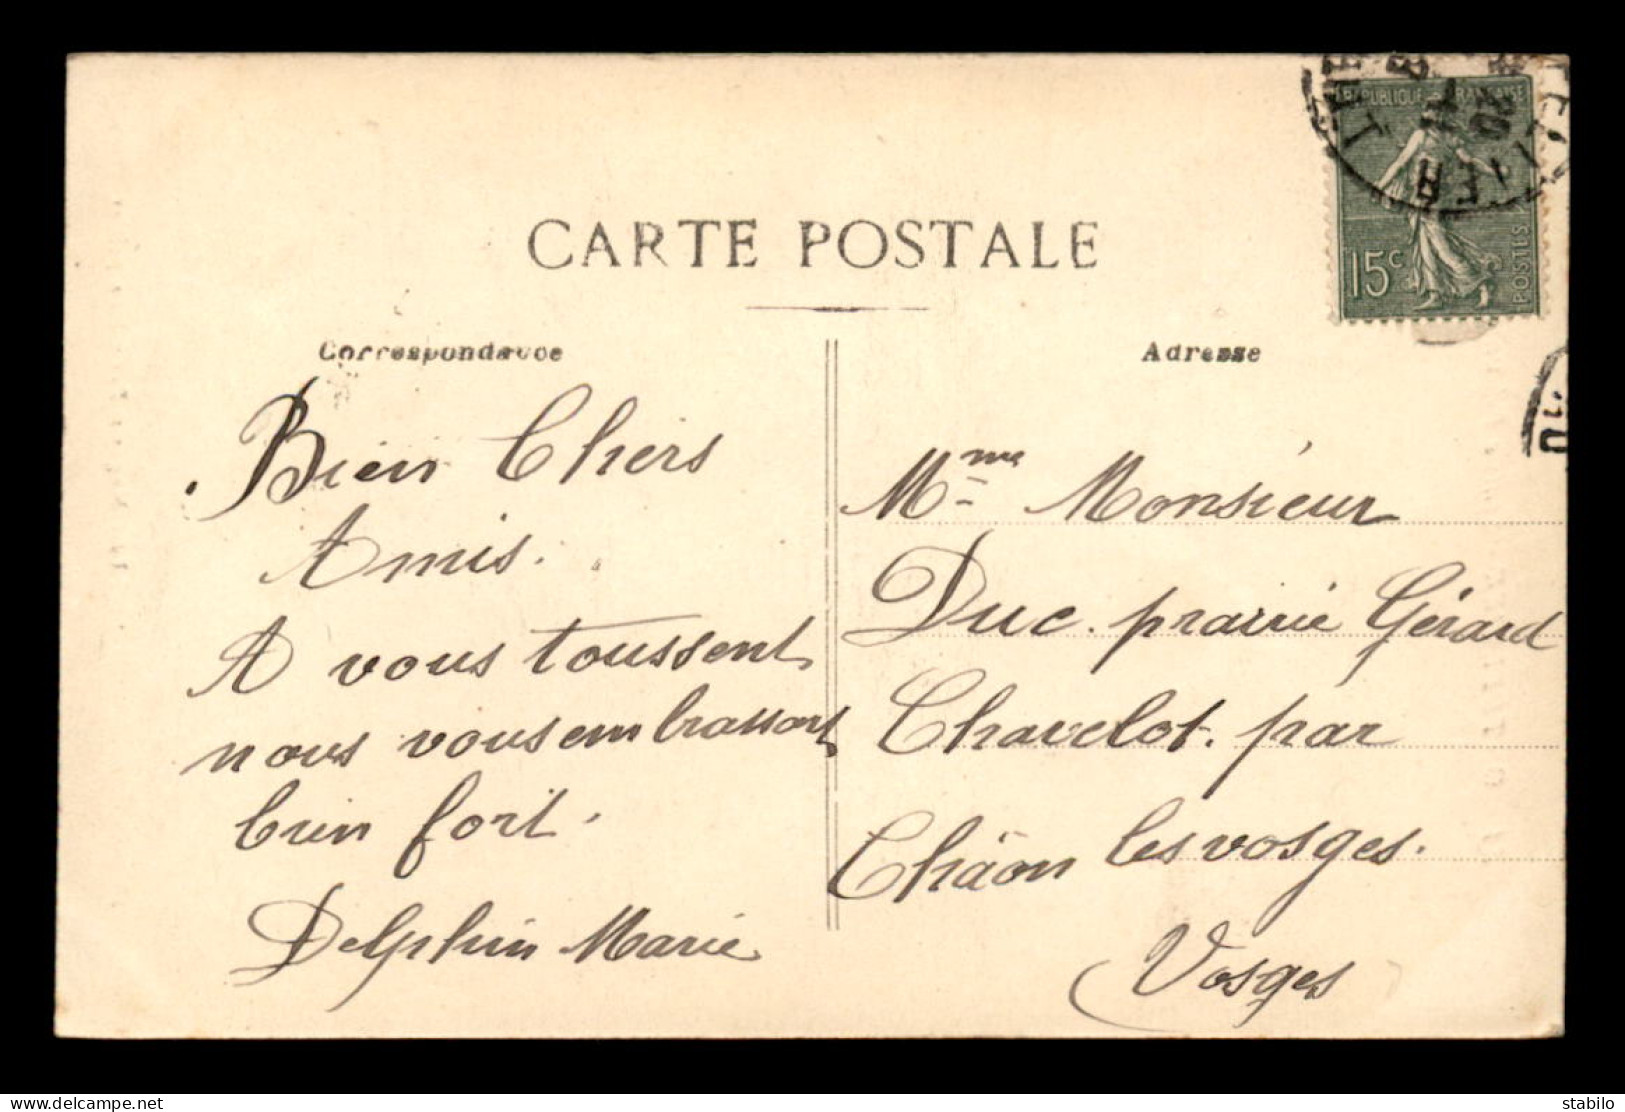 CARTE POSTALE
Correspondance
Bien Chers
Amis.
A vous toussent
nous vous embrassons
bien fort.
Delphin Marie
Adresse
Mme Monsieur
Duc. prairie Gérard
Chavelot. par
Châon les vosges.
Vosges
REPUBLIQUE FRANÇAISE
15c
POSTES